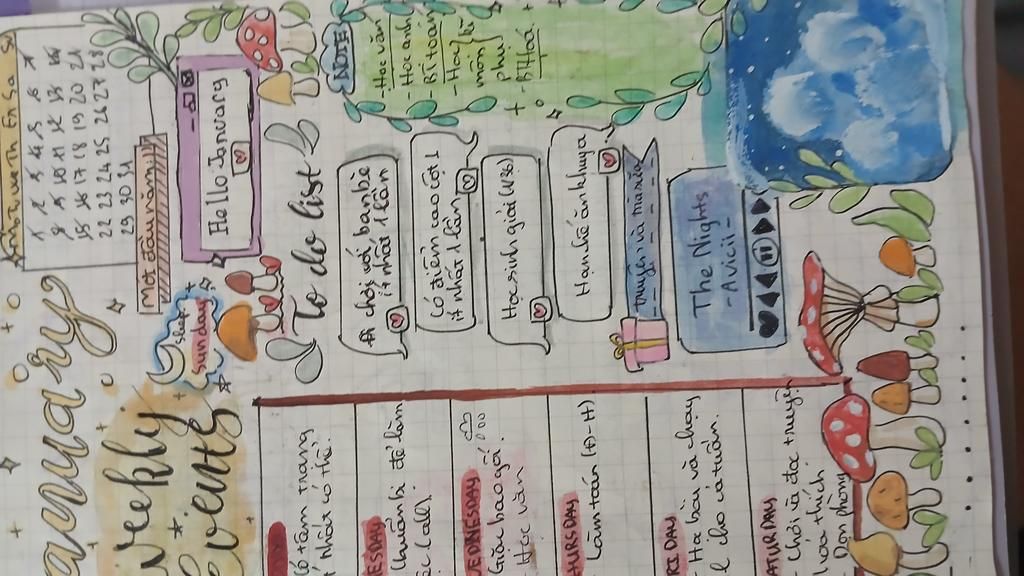 January
Mo Tu We Th Fr Sa Su
1 2 3 4 5 6 7
8 9 10 11 12 13 14
15 16 17 18 19 20 21
22 23 24 25 26 27 28
29 30 31
Một đầu năm ...
Weekly
Events
Start
sunday
Hello January
To do list
Đi chơi với banbè
ít nhất 1 lần
Có điểm cao cột 1
ít nhất 1 lần
Học sinh giỏi (U36)
Hạn chế ăn khuya
Truyện và
The Nights
- Avicii -
NOTE
- Học văn
- Học anh
- BT toán
- Học bì
môn
phụ
- BT Hoá
Có tâm trạng
Nhất có thể.
ESDAY
Chuẩn bị đề làm
EDNESDAY
Học văn
HURSDAY
Làm toán (A-H)
RIDAY
Học bài và chạy
cho cả tuần.
ATURDAY
Chơi và đọc truyện
vừa thích
Dọn phòng